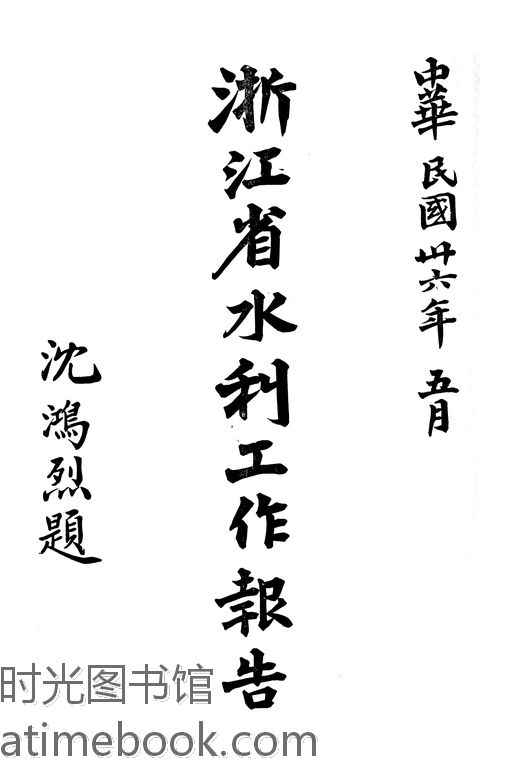 中華民國卅六年 五月
浙江省水利工作報告
沈鴻烈題
时光图书馆
atimebook.com